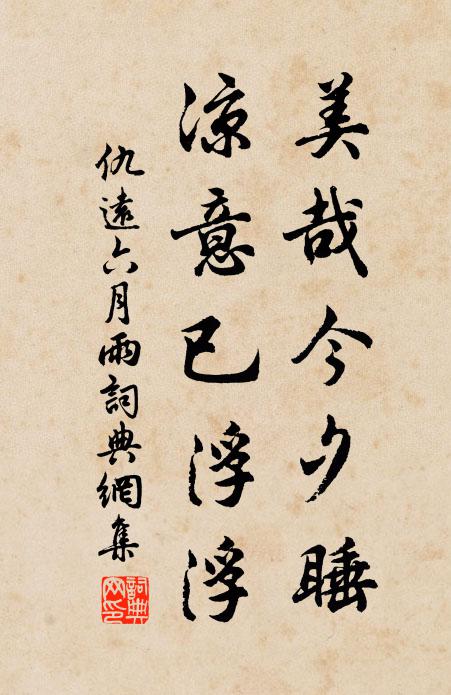 美哉今夕睡
涼意已浮浮
仇遠六月雨詞典網集
詞典網印